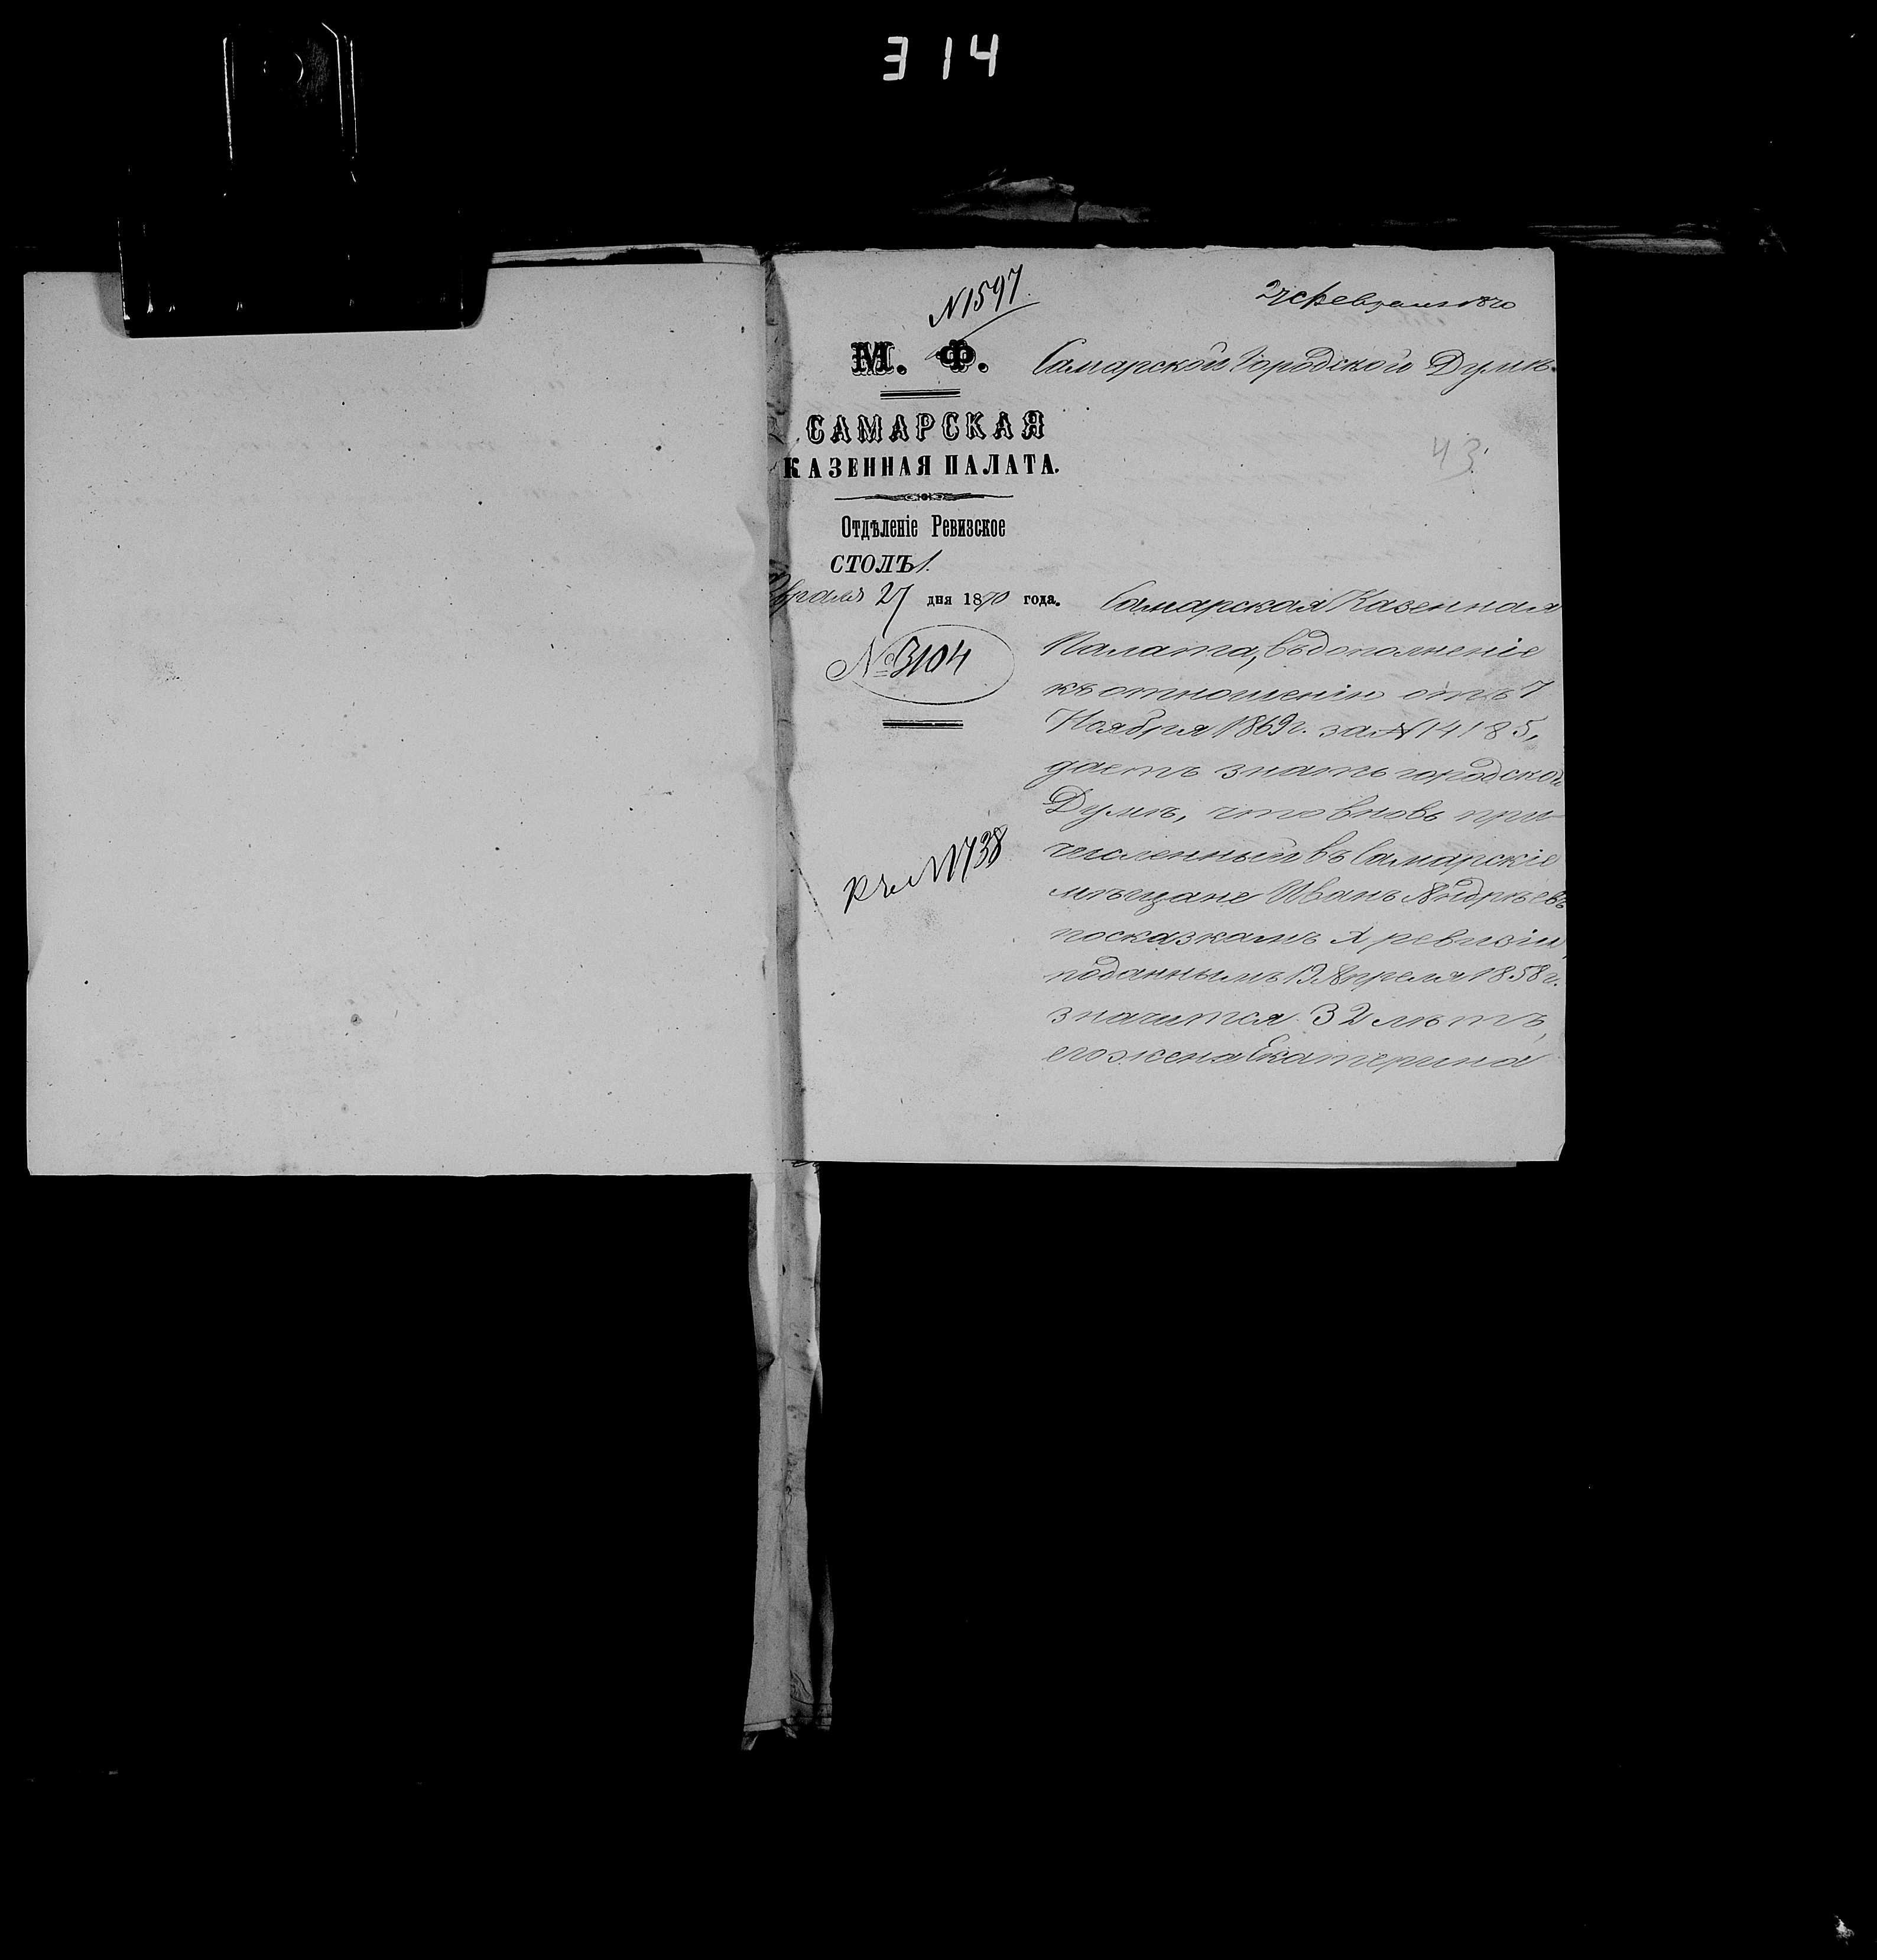 314
N1597
27 Февраля 1870
М. Ф.
Самарской Городской Думѣ.
САМАРСКАЯ
КАЗЕННАЯ ПАЛАТА.
43
Отдѣленіе Ревизское
СТОЛЪ 1.
Февраля 27 дня 1870 года.
№ 3104
Самарская Казенная
Палата, въ дополненіе
къ отношенію отъ 7
Ноября 1869 г. за N 14185,
даетъ знать городской
Думѣ, что вновь при-
численный въ Самарскіе
мѣщане Иванъ Андреевъ
по сказкамъ X ревизіи,
поданнымъ 19 Апреля 1858 г.
значится 32 лѣтъ,
его жена Екатерина
N1738